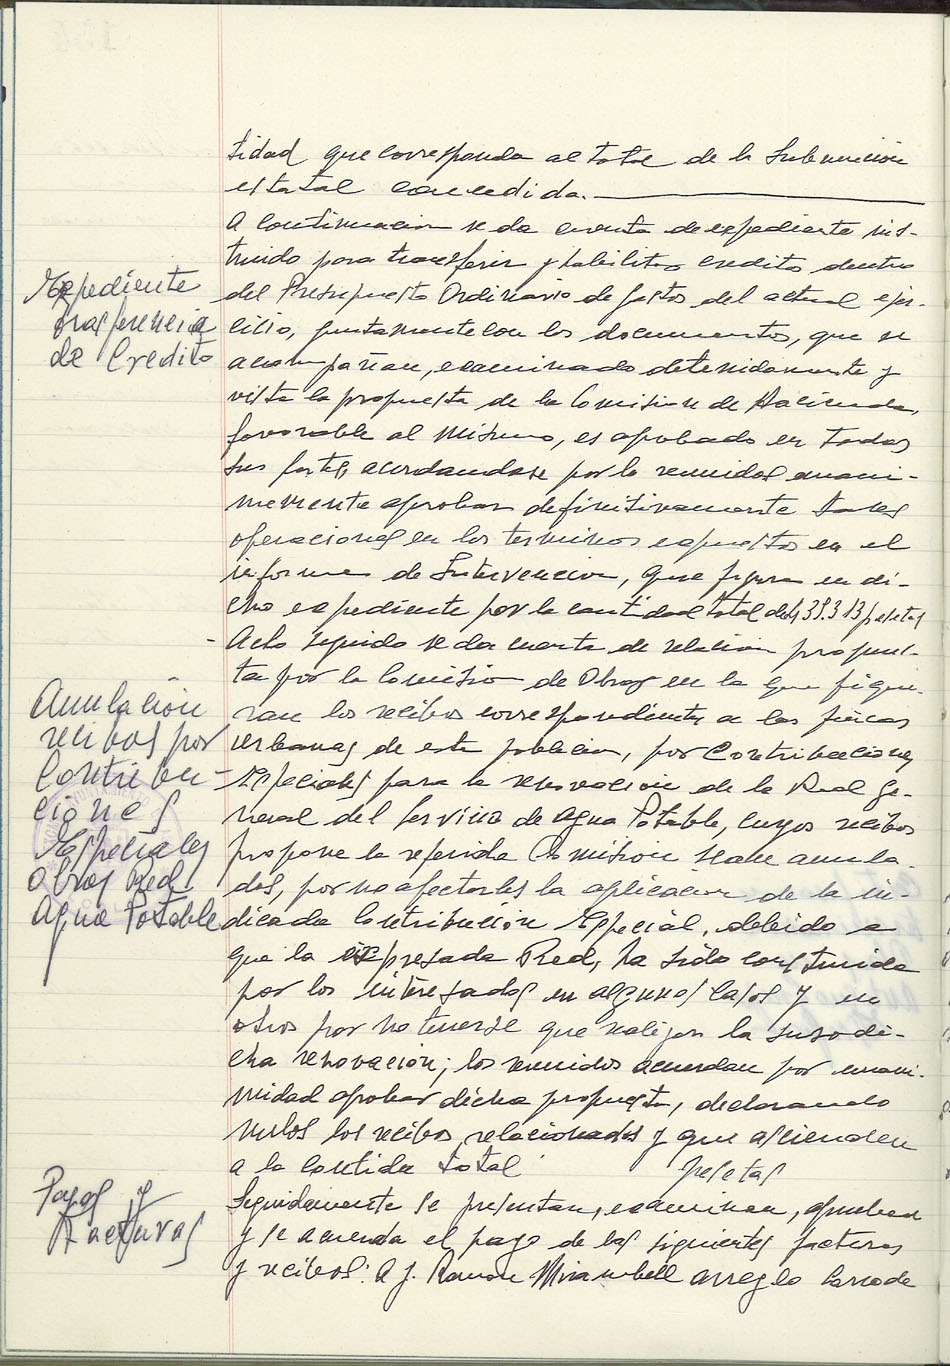 tidad que corresponda al total de la Subvención
estatal concedida.
A continuacion se da cuenta de expediente ins-
truido para transferir y habilitar credito dentro
del Presupuesto Ordinario de gastos del actual ejer-
cicio, juntamente con los documentos, que se
acompañan, examinado detenidamente y
vista la propuesta de la Comision de Hacienda,
favorable al mismo, es aprobado en todas
sus partes, acordandose por lo reunidos unani-
memente aprobar definitivamente tales
operaciones en los terminos expuestos en el
informe de Intervencion, que figura en di-
cho expediente por la cantidad total de pesetas
Acto seguido se da cuenta de relacion propues-
ta por la Comision de Obras en la que figu-
ran los recibos correspondientes a las fincas
urbanas de esta poblacion, por Contribuciones
Especiales para la renovacion de la Red Ge-
neral del Servicio de Agua Potable, cuyos recibos
propone la referida Comision sean anula-
dos, por no afectarles la aplicacion de la in-
dicada Contribución Especial, debido a
que la expresada Red, ha sido construida
por los interesados en algunos casos y en
otros por no tenerse que realizar la susodi-
cha renovación; los reunidos acuerdan por unani-
midad aprobar dicha propuesta, declarando
nulos los recibos relacionados y que ascienden
a la cantidad total pesetas
Seguidamente se presentan, examinan, aprueban
y se acuerda el pago de las siguientes facturas
y recibos: a J. Ramon Mirambell arreglo
Expediente
trasferencia
de Credito
Anulación
recibos por
Contribu-
ciones
Especiales
obras Red
Agua Potable
Pagos y
Facturas